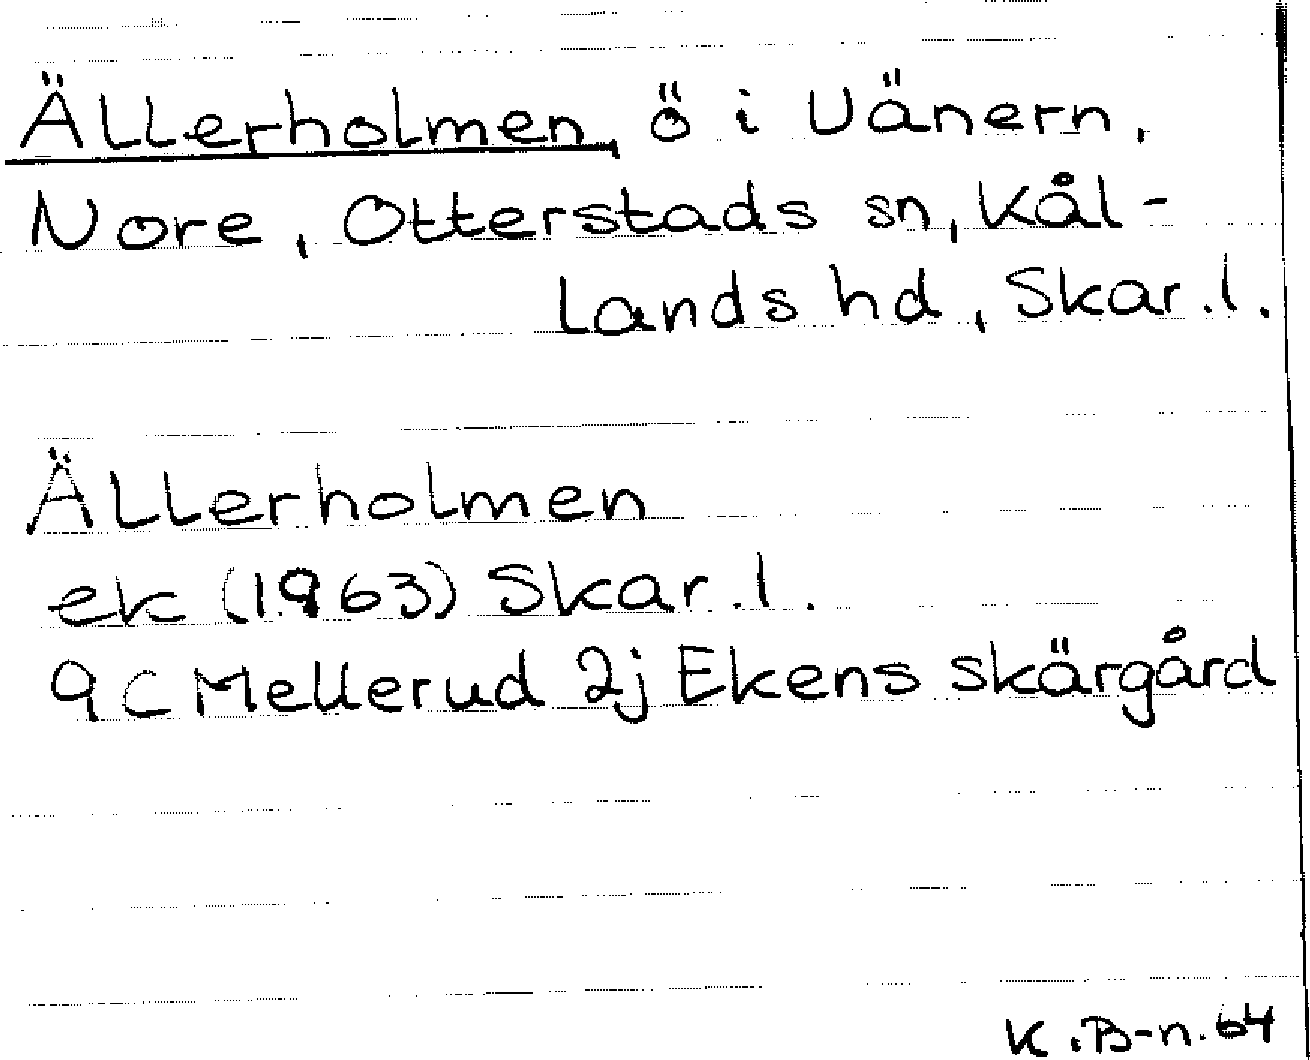 Ällerholmen, ö i Vänern,
Nore, Otterstads sn, Kål-
lands hd, Skar.l.
Ällerholmen
ek (1963) Skar.l.
9C Mellerud 2j Ekens skärgård
K.B-n.64